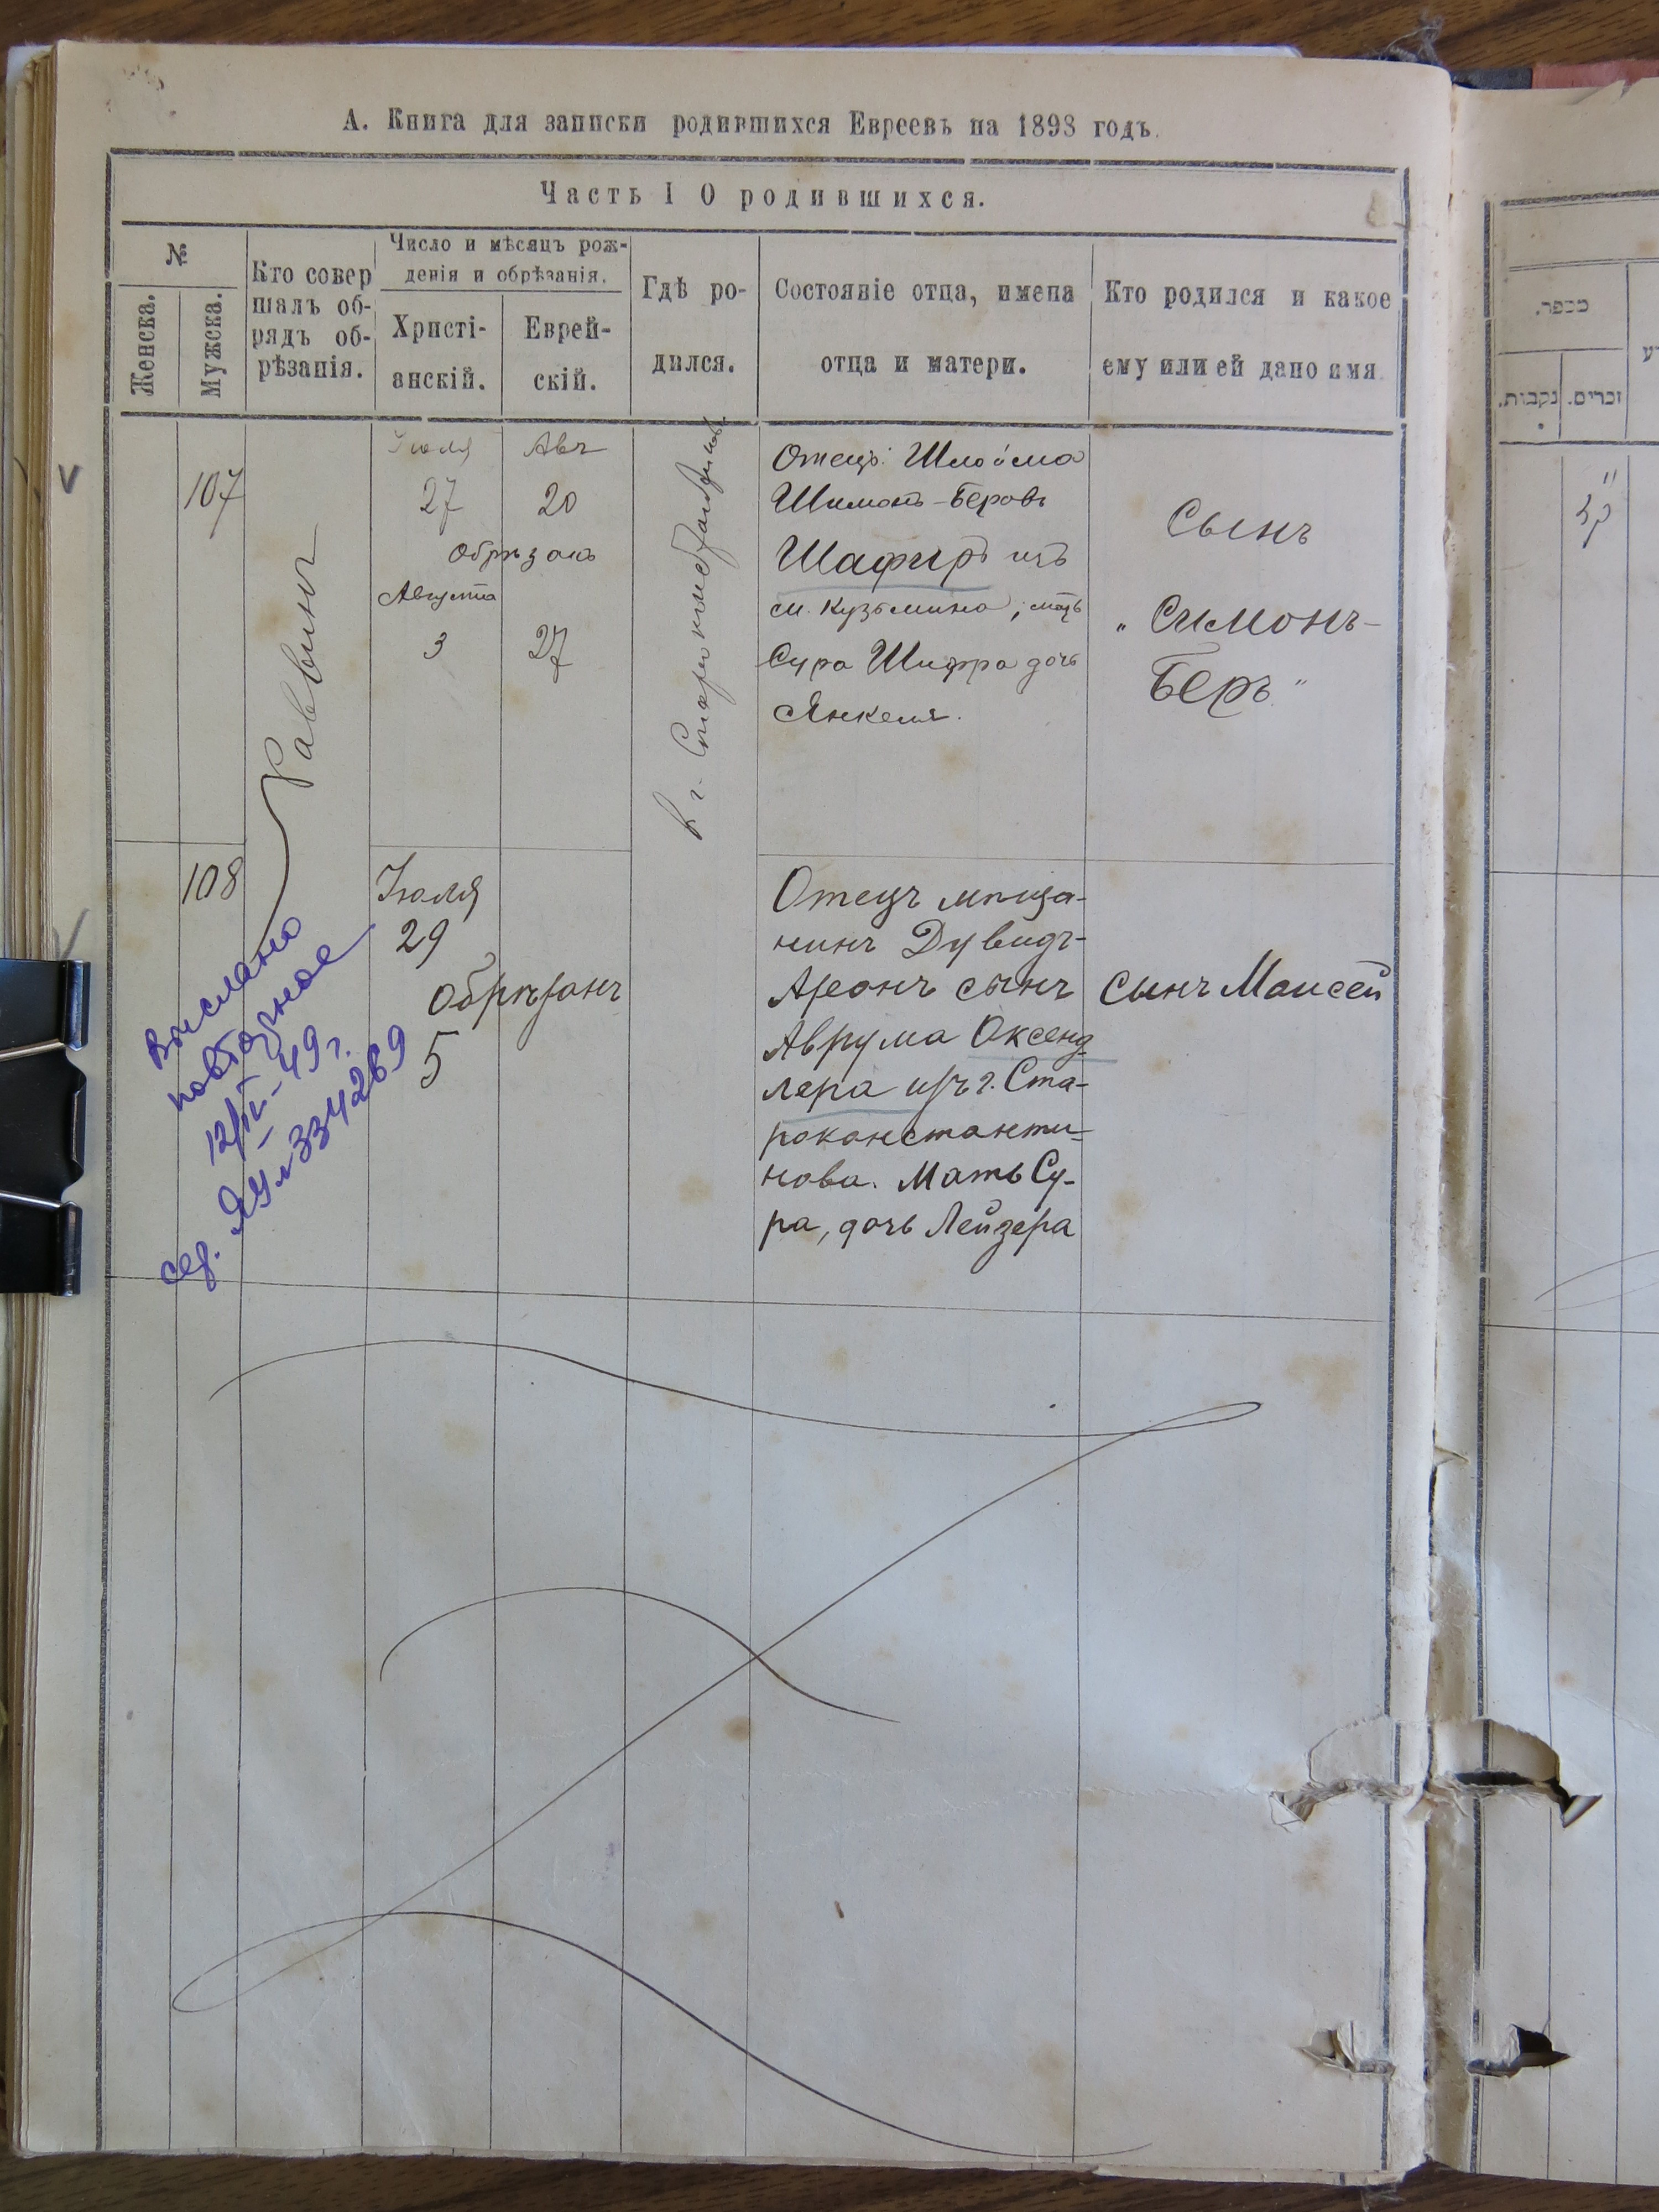 А. Книга для записки родившихся Евреевъ на 1898 годъ.
Часть I О родившихся.
№
Женска.
Мужска.
Кто совер
шалъ об-
рядъ об-
рѣзанія.
Число и мѣсяцъ рож-
денія и обрѣзанія.
Христі-
анскій.
Еврей-
скій.
Гдѣ ро-
дился.
Состояніе отца, имена
отца и матери.
Кто родился и какое
ему или ей дано имя.
107
Раввинъ
Іюля
27
Авъ
20
Обрѣзанъ
Августа
3
27
в г. Староконстантиновѣ
Отецъ: Шлойма
Шимонъ-Беровъ
Шафиръ изъ
м. Кузьмина, мать
Сура Шифра дочь
Янкеля.
Сынъ
„Симонъ-
Беръ"
108
Іюля
29
Обрѣзанъ
5
Отецъ мѣща-
нинъ Дувидъ-
Аронъ сынъ
Аврума Оксенд-
лера изъ г. Ста-
роконстанти-
нова. Мать Су-
ра, дочь Лейзера
Сынъ Моисей
Выслано
повторное
12/IV-49 г.
334269
מספר.
נקבות.
זכרים.